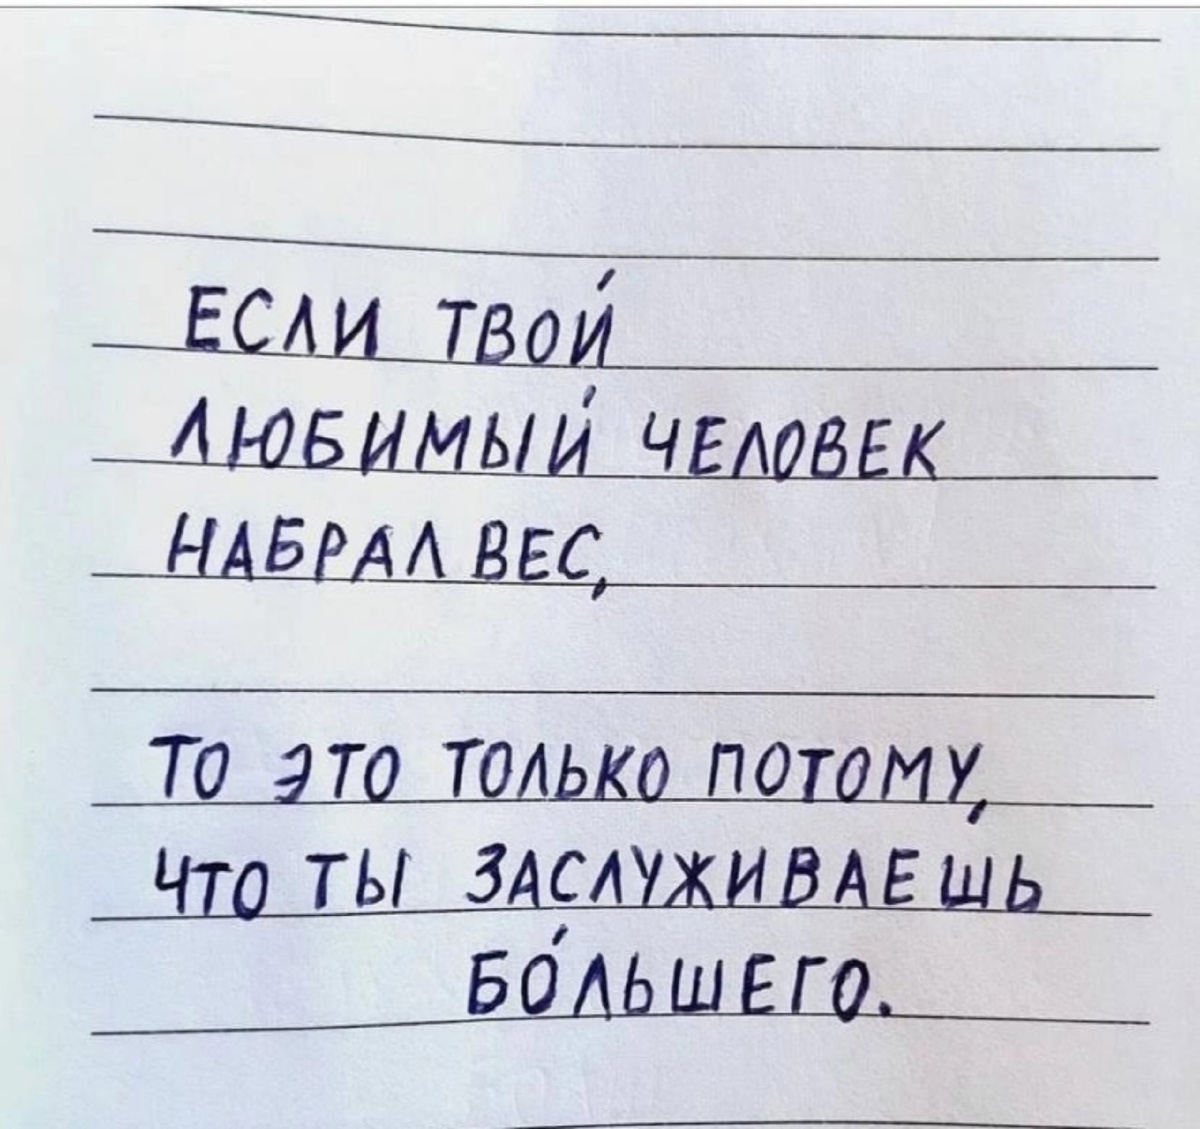 ЕСЛИ ТВОЙ
ЛЮБИМЫЙ ЧЕЛОВЕК
НАБРАЛ ВЕС,
ТО ЭТО ТОЛЬКО ПОТОМУ,
ЧТО ТЫ ЗАСЛУЖИВАЕШЬ
БО́ЛЬШЕГО.